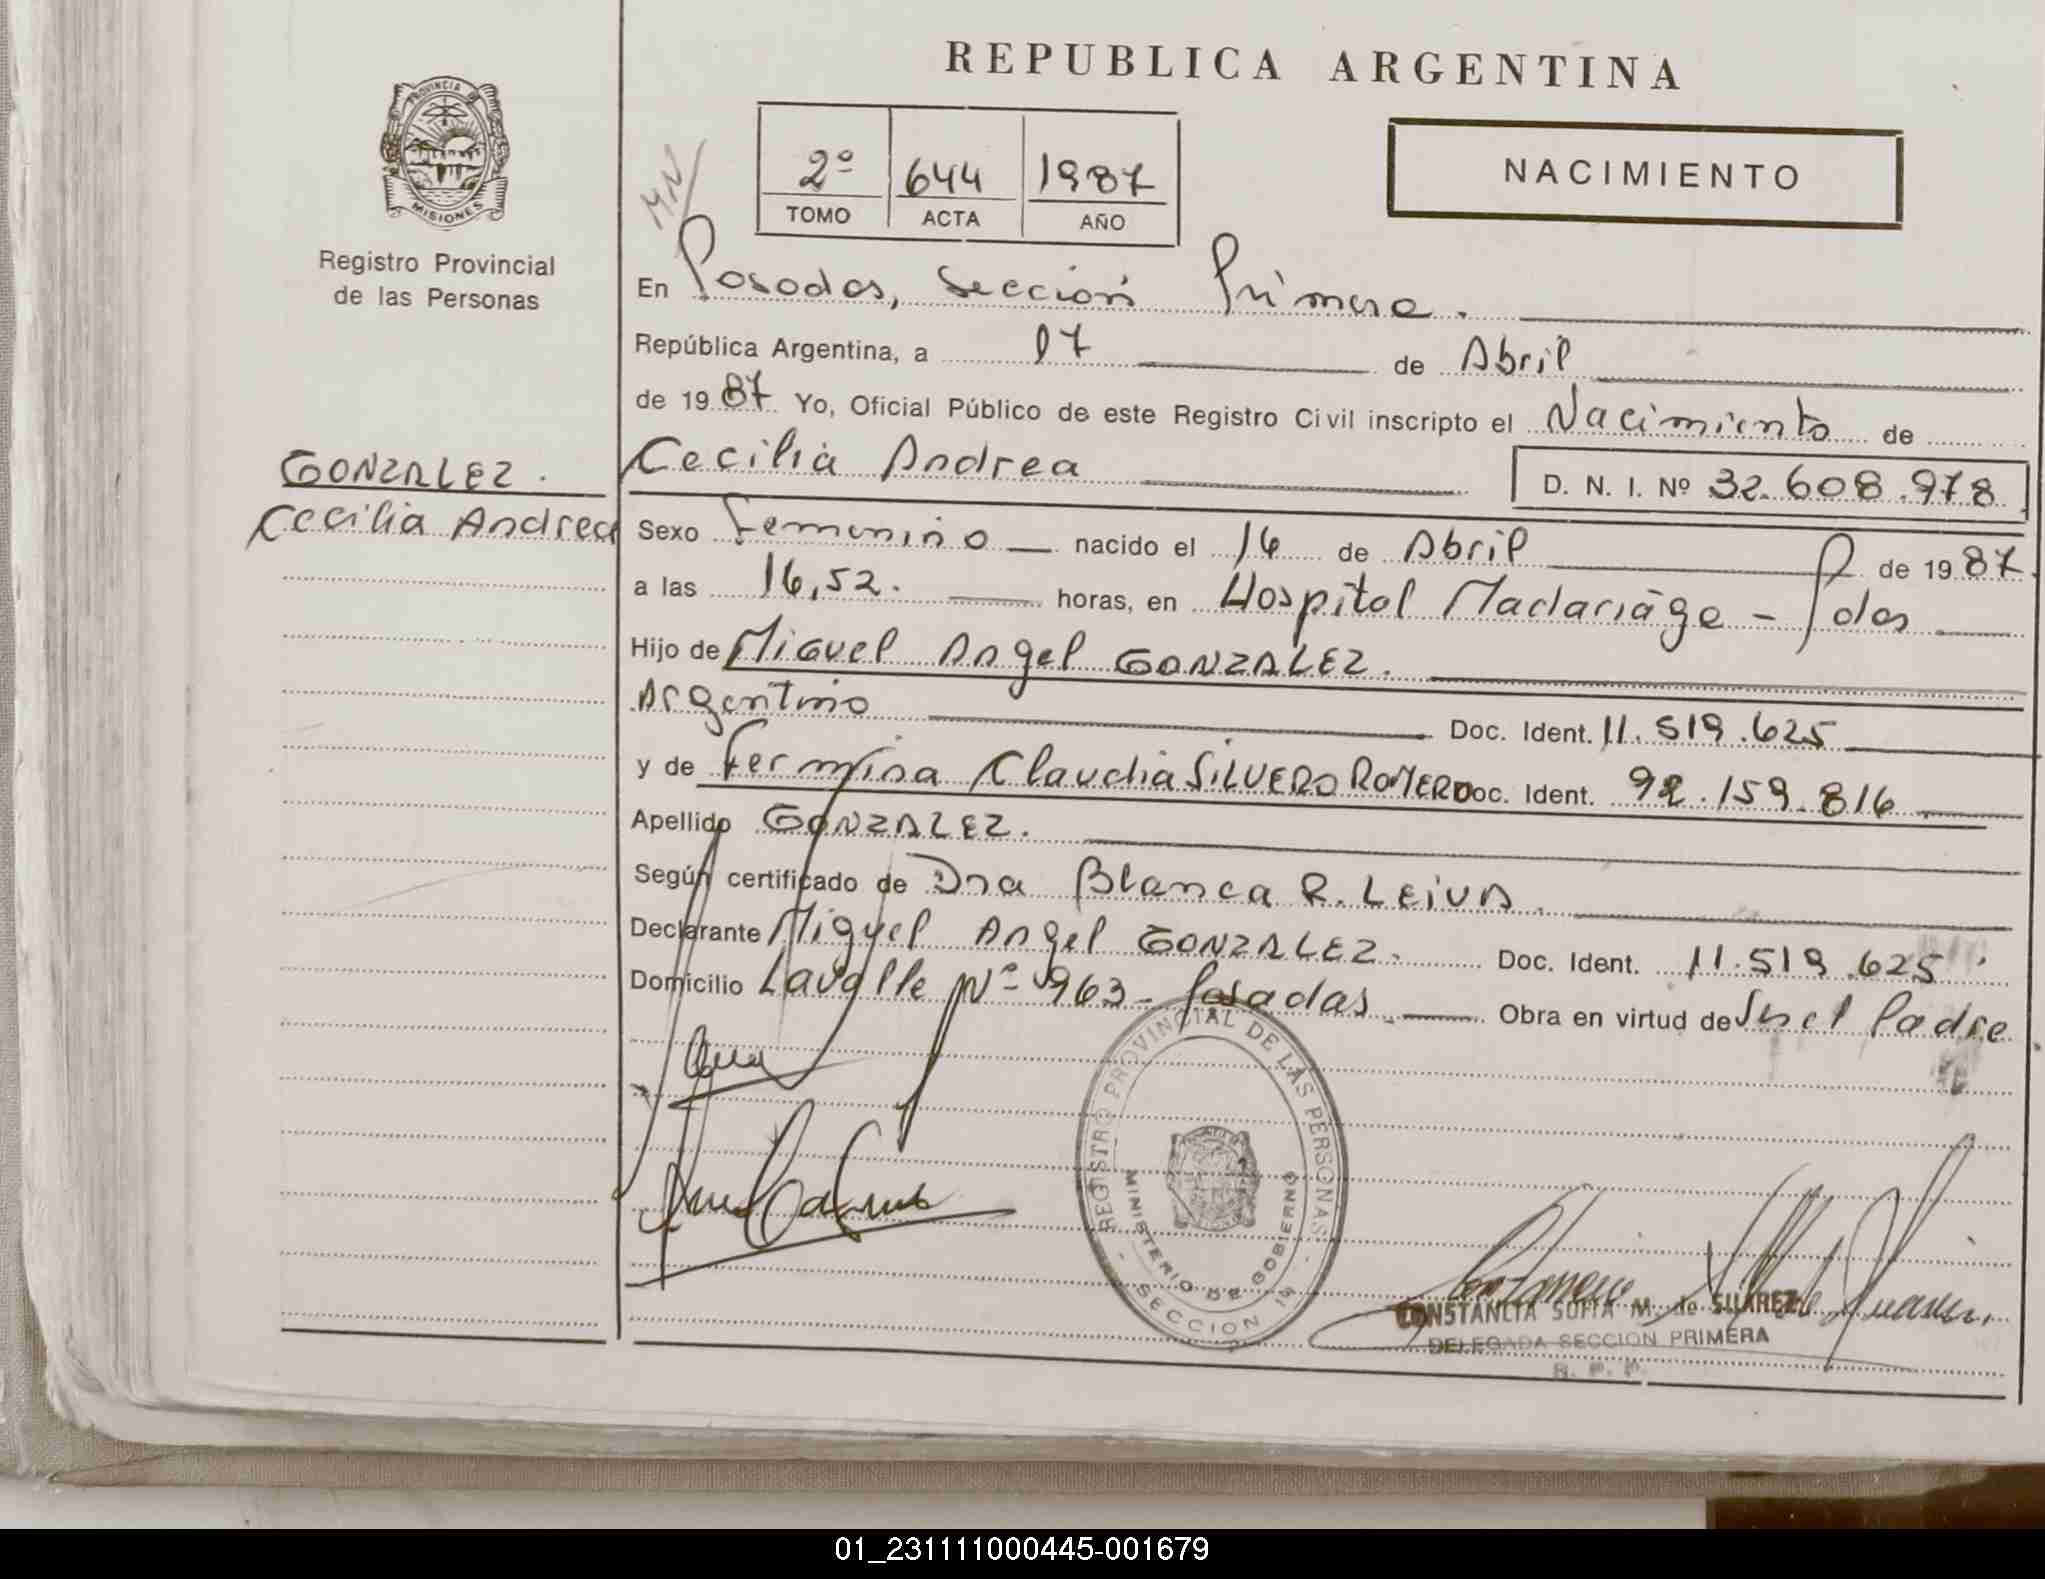 REPUBLICA ARGENTINA
PROVINCIA DE
MISIONES
Registro Provincial
de las Personas
MN
2º 644 1987
TOMO ACTA AÑO
NACIMIENTO
En Posadas, Sección Primera.
República Argentina, a 17 de Abril
de 1987 Yo, Oficial Público de este Registro Civil inscripto el Nacimiento de
GONZALEZ.
Cecilia Andrea
Cecilia Andrea D. N. I. Nº 32.608.978
Sexo Femenino nacido el 16 de Abril de 1987
a las 16,52. horas, en Hospital Madariaga - Pdas
Hijo de Miguel Angel GONZALEZ.
Argentino Doc. Ident. 11.519.625
y de Fermina Claudia SILVERO ROMERO Doc. Ident. 92.159.816
Apellido GONZALEZ.
Según certificado de Dra Blanca R. LEIVA.
Declarante Miguel Angel GONZALEZ. Doc. Ident. 11.519.625
Domicilio Lavalle Nº 963 - Posadas. Obra en virtud de Ser el Padre
REGISTRO PROVINCIAL DE LAS PERSONAS
MINISTERIO DE GOBIERNO
- SECCION 1ª -
CONSTANCIA SOFIA M. de SUAREZ
DELEGADA SECCION PRIMERA
R. P. P.
01_231111000445-001679